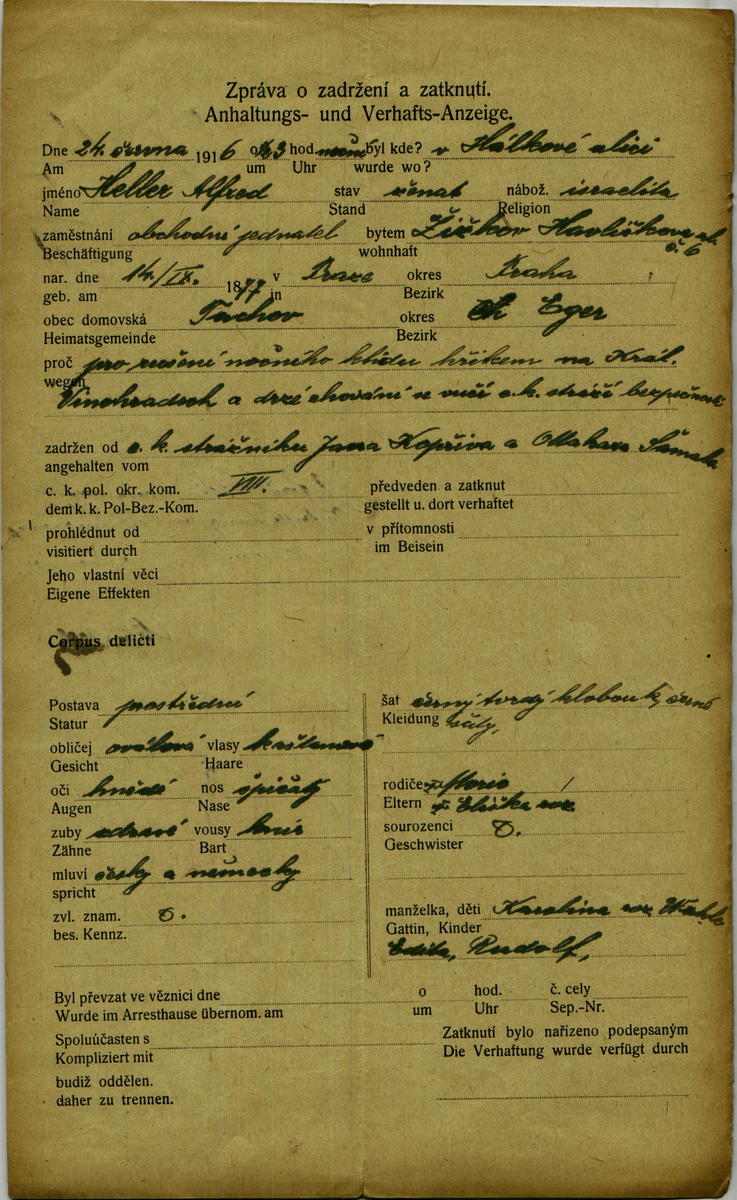 Zpráva o zadržení a zatknutí.
Anhaltungs- und Verhafts-Anzeige.
Dne 24. června 1916 o 3 hod. byl kde? v Hálkové ulici
Am um Uhr wurde wo?
jméno Heller Alfred stav ženat nábož. israelita
Name Stand Religion
zaměstnání obchodní jednatel bytem Žižkov Havlíčkova ul.
č. 6
Beschäftigung wohnhaft
nar. dne 14./IX. 1877 v Praze okres Praha
geb. am in Bezirk
obec domovská Tachov okres Eger
Heimatsgemeinde Bezirk
proč pro rušení nočního klidu křikem na Král.
wegen
Vinohradech a drzé chování se vůči c.k. stráži bezpečnosti
zadržen od c. k. strážníku Jana Kopřiva a Ottakara
angehalten vom
c. k. pol. okr. kom. VIII. předveden a zatknut
dem k. k. Pol-Bez.-Kom. gestellt u. dort verhaftet
prohlédnut od v přítomnosti
visitiert durch im Beisein
Jeho vlastní věci
Eigene Effekten
Corpus delicti
Postava prostřední šat černý tvrdý klobouk, černé
Statur Kleidung šaty,
obličej oválová vlasy kaštanové
Gesicht Haare
oči hnědé nos špičatý rodiče
Augen Nase Eltern
zuby zdravé vousy knír sourozenci 0.
Zähne Bart Geschwister
mluví česky a německy
spricht
zvl. znam. 0. manželka, děti Karolina roz.
bes. Kennz. Gattin, Kinder
Edita, Rudolf,
Byl převzat ve věznici dne o hod. č. cely
Wurde im Arresthause übernom. am um Uhr Sep.-Nr.
Spoluúčasten s Zatknutí bylo nařízeno podepsaným
Kompliziert mit Die Verhaftung wurde verfügt durch
budiž oddělen.
daher zu trennen.